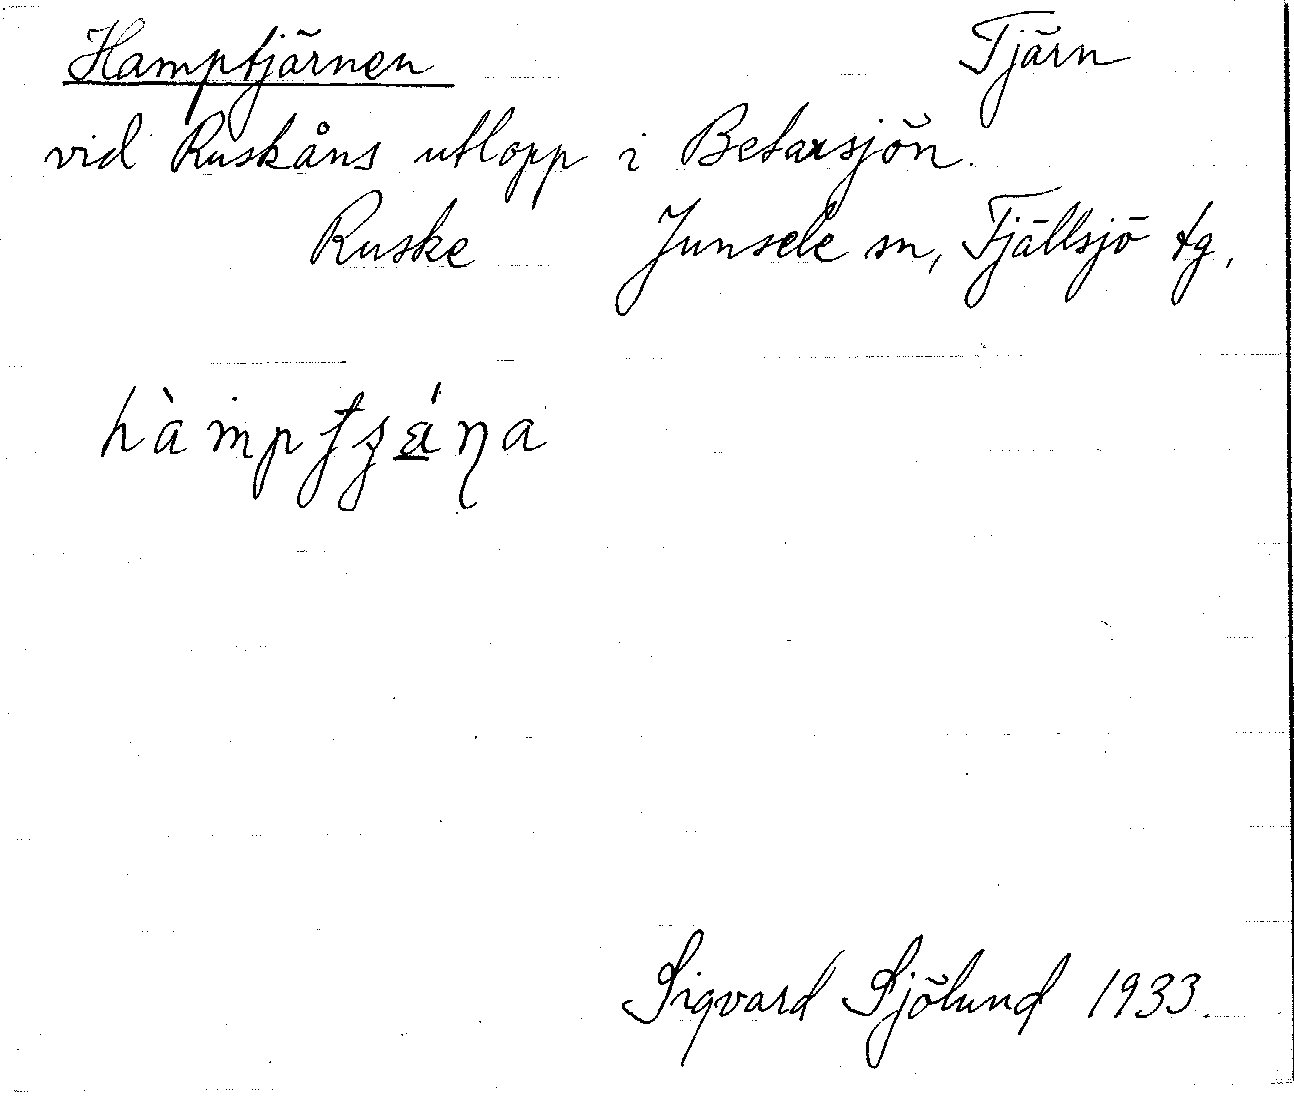 Hamptjärnen Tjärn
vid Ruskåns utlopp i Betarsjön.
Ruske Junsele sn, Fjällsjö tg,
Sigvard Sjölund 1933.